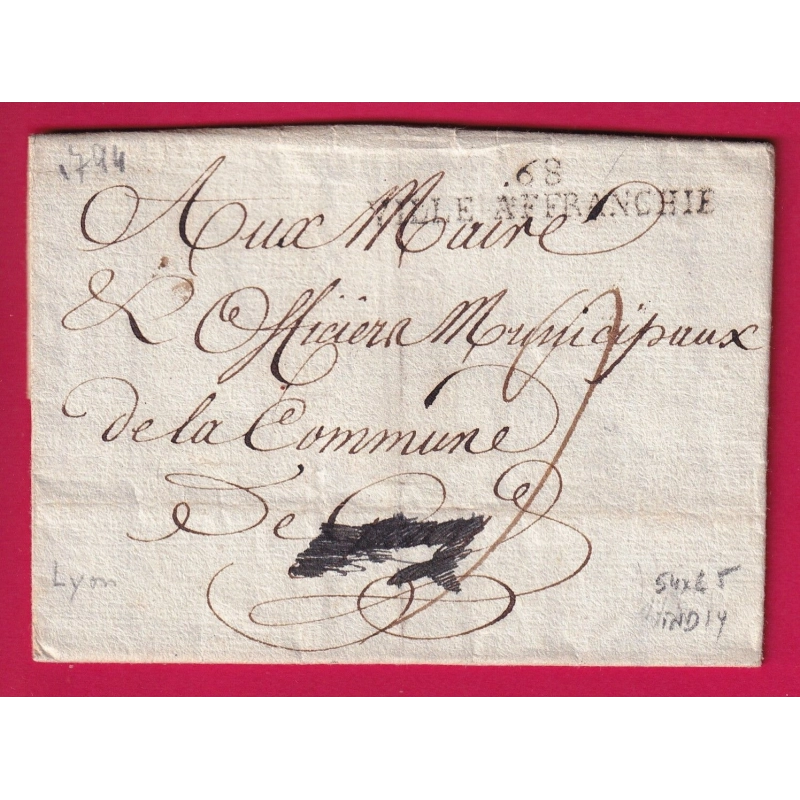 1794
68
VILLE AFFRANCHIE
Aux Maire
& Officiers Municipaux
de la Commune
De
Lyon
54x6 5
IND 14